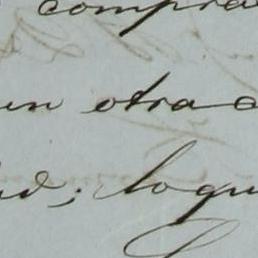 compra
un otra
; loqu